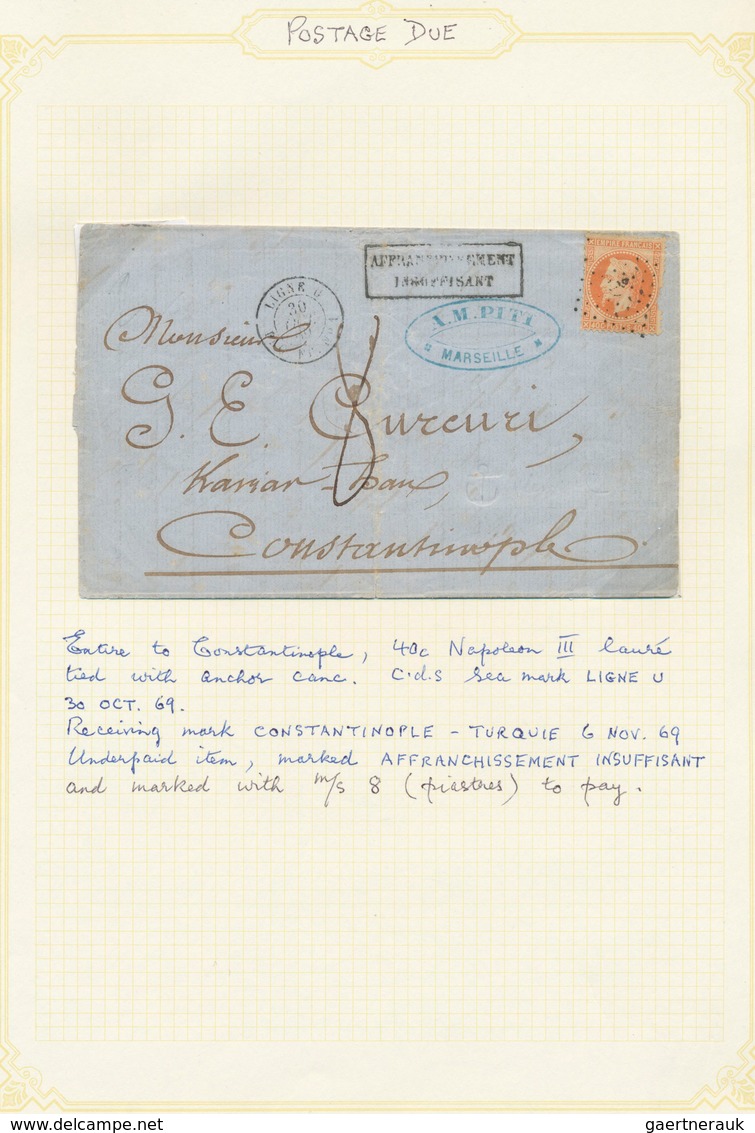 POSTAGE DUE
AFFRANCHISSEMENT
INSUFFISANT
EMPIRE FRANÇAIS
LIGNE U
30
A.M. PITI
MARSEILLE
Monsieur
G. E. Curcuri,
Kaviar-han,
Constantinople.
8
Entire to Constantinople, 40c Napoleon III lauré
tied with anchor canc. c.d.s sea mark LIGNE U
30 OCT. 69.
Receiving mark CONSTANTINOPLE - TURQUIE 6 NOV. 69
Underpaid item, marked AFFRANCHISSEMENT INSUFFISANT
and marked with m/s 8 (piastres) to pay.
gaertnerauk